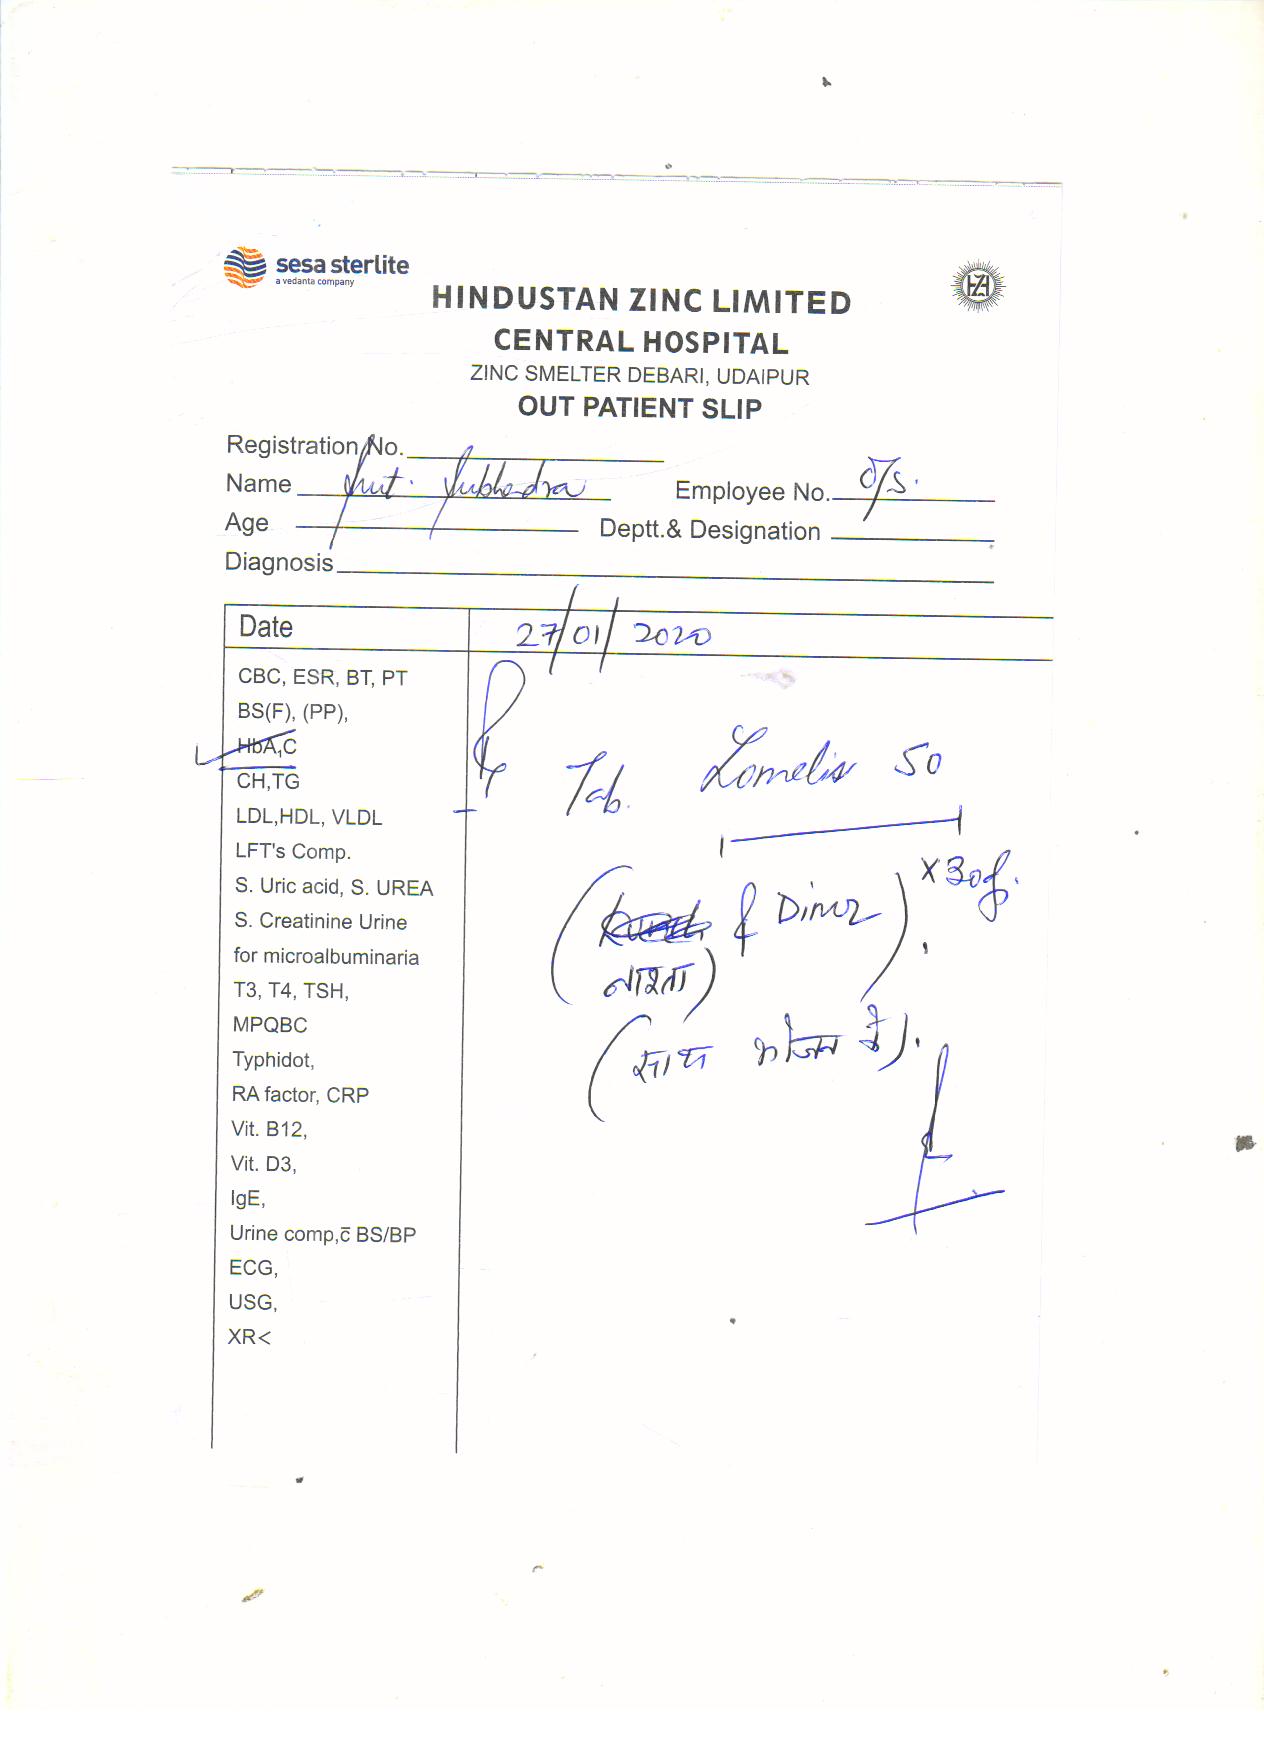 sesa sterlite
a vedanta company
HINDUSTAN ZINC LIMITED
CENTRAL HOSPITAL
ZINC SMELTER DEBARI, UDAIPUR
OUT PATIENT SLIP
Registration No.
Name Smt. Subhadra Employee No. O/S.
Age Deptt.& Designation
Diagnosis
Date 27/01/2020
CBC, ESR, BT, PT
BS(F), (PP),
HbA₁C
Tab. 50
CH,TG
LDL,HDL, VLDL
LFT's Comp.
x 30
S. Uric acid, S. UREA
S. Creatinine Urine
( & Diner).
for microalbuminaria
नाश्ता)
T3, T4, TSH,
MPQBC
(साथ भोजन के).
Typhidot,
RA factor, CRP
Vit. B12,
Vit. D3,
IgE,
Urine comp,c̄ BS/BP
ECG,
USG,
XR<